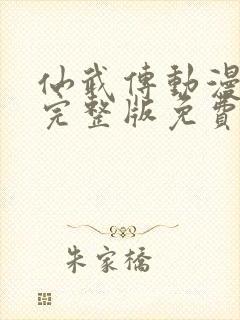 仙武傳動漫
完整版免費
朱家橋